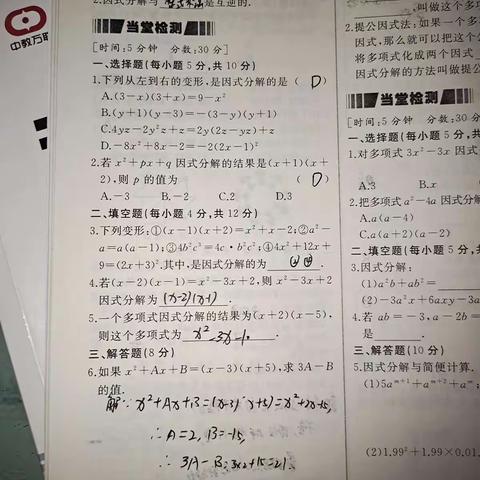 中教万联
2.因式分解与整式乘法是互逆的.
当堂检测
[时间:5分钟 分数:30分]
一、选择题(每小题5分,共10分)
1.下列从左到右的变形,是因式分解的是 (D)
A.(3-x)(3+x)=9-x²
B.(y+1)(y-3)=-(3-y)(y+1)
C.4yz-2y²z+z=2y(2z-yz)+z
D.-8x²+8x-2=-2(2x-1)²
2.若x²+px+q因式分解的结果是(x+1)(x+
2),则p的值为 (D)
A.-3 B.-2 C.2 D.3
二、填空题(每小题4分,共12分)
3.下列变形:①(x-1)(x+2)=x²+x-2;②a²-
a=a(a-1);③4b²c³=4c·b²c²;④4x²+12x+
9=(2x+3)².其中,是因式分解的为 ②④ .
4.若(x-2)(x-1)=x²-3x+2,则x²-3x+2
因式分解为 (x-2)(x-1) .
5.一个多项式因式分解的结果为(x+2)(x-5),
则这个多项式为 x²-3x-10 .
三、解答题(8分)
6.如果x²+Ax+B=(x-3)(x+5),求3A-B
的值.
解:x²+Ax+B=(x-3)(x+5)=x²+2x-15,
∴A=2,B=-15,
∴3A-B=3×2+15=21.
,叫做这个多
2.提公因式法:如果一个多
因式,那么就可以把这个
将多项式化成两个因式
因式分解的方法叫做提公
当堂检测
[时间:5分钟 分数:30分
一、选择题(每小题5分,共
1.对多项式3x²-3x因式
A.3 B.x
2.把多项式a²-4a因式分解
A.a(a-4)
C.a(a+2)(a-2)
二、填空题(每小题5分,共
3.因式分解:
(1)a²b+ab²=
(2)-3a²x+6axy-3a
4.若ab=-3,a-2b=
是 .
三、解答题(10分)
5.因式分解与简便计算.
(1)5aᵐ⁺¹+aᵐ⁺²+aᵐ;
(2)1.99²+1.99×0.01.